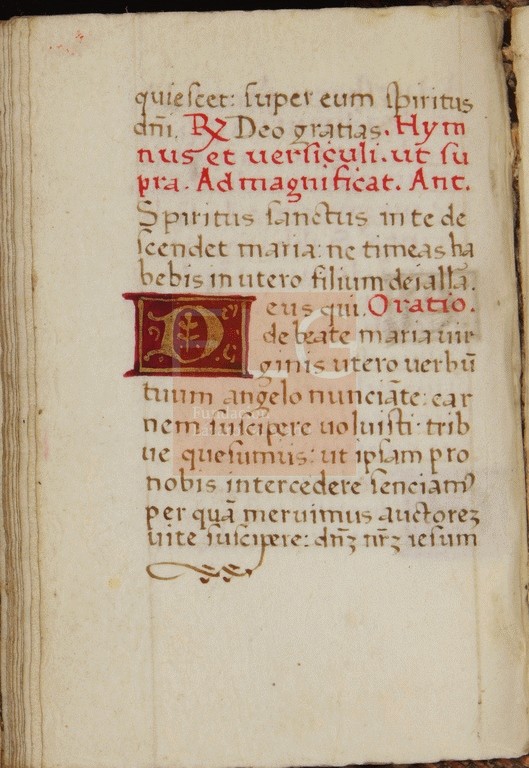 quiescet: super eum spiritus
dñi. R⁊ Deo gratias. Hym
nus et uersiculi. ut su
pra. Ad magnificat. Ant.
Spiritus sanctus in te de
scendet maria: ne timeas ha
bebis in utero filium dei alľa.
Deus qui. Oratio.
de beate maria uir
ginis utero uerbū
tuum angelo nunciāte: car
nem suscipere uoluisti: trib
ue quesumus: ut ipsam pro
nobis intercedere senciam⁹
per quā meruimus auctorez
uite suscipere: dñʒ nr̃ʒ iesum